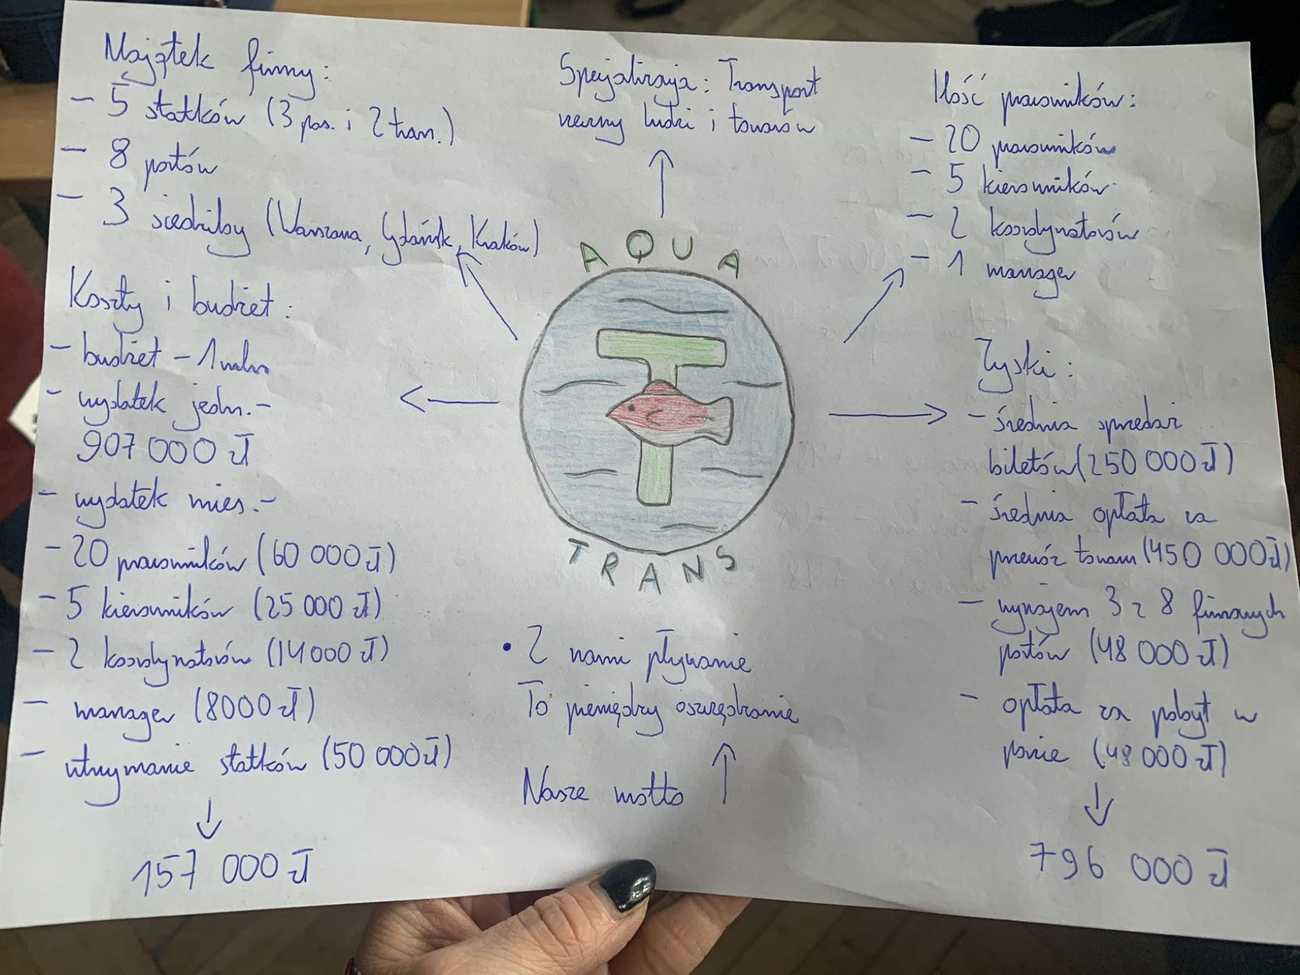 Majątek firmy:
- 5 statków (3 pas. i 2 tran.)
- 8 portów
- 3 siedziby (Warszawa, Gdańsk, Kraków)
Koszty i budżet:
- budżet - 1 mln
- wydatek jedn. -
907 000 zł
- wydatek mies. -
- 20 pracowników (60 000 zł)
- 5 kierowników (25 000 zł)
- 2 koordynatorów (14 000 zł)
- manager (8000 zł)
- utrzymanie statków (50 000 zł)
157 000 zł
Specjalizacja: Transport
rzeczny ludzi i towarów
AQUA
T
TRANS
• Z nami pływanie
To pieniędzy oszczędzanie
Nasze motto
Ilość pracowników:
- 20 pracowników
- 5 kierowników
- 2 koordynatorów
- 1 manager
Zyski:
- średnia sprzedaż
biletów (250 000 zł)
- średnia opłata za
przewóz towaru (450 000 zł)
- wynajem 3 z 8 firmowych
portów (48 000 zł)
- opłata za pobyt w
porcie (48 000 zł)
796 000 zł